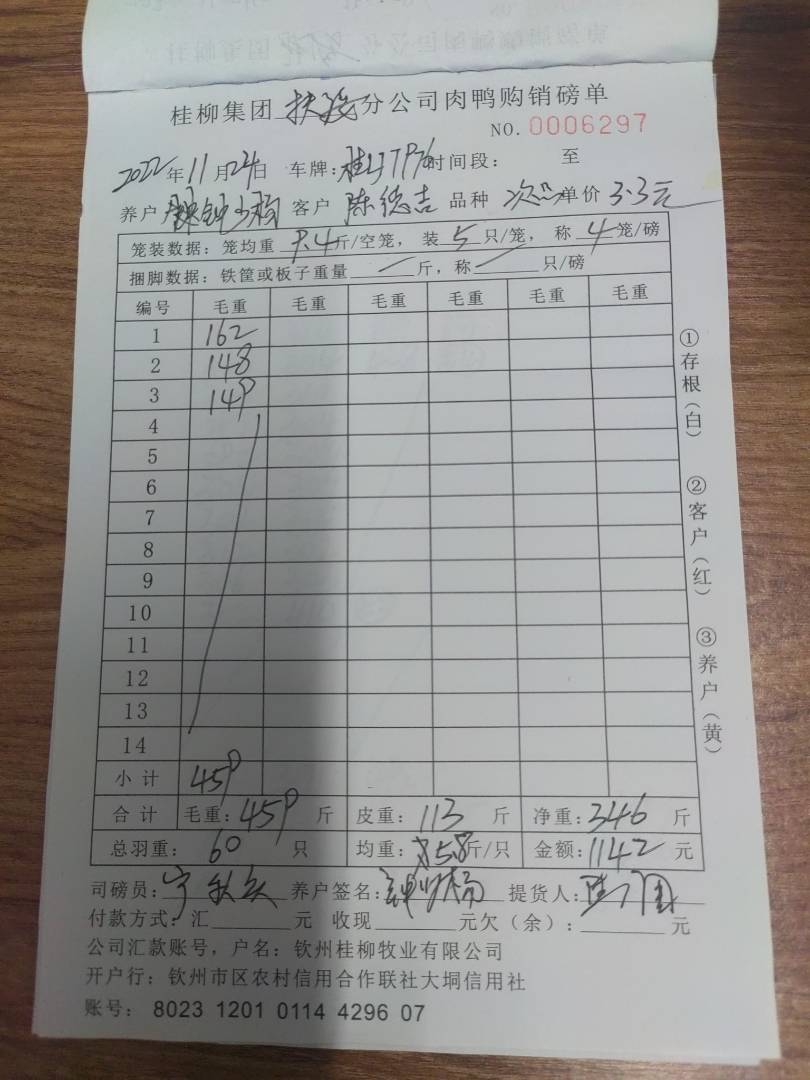 桂柳集团 分公司肉鸭购销磅单
NO. 0006297
2022年11月24日 车牌: 时间段: 至
养户 客户 陈德吉 品种 次品 单价 3.3元
笼装数据: 笼均重 9.4斤/空笼, 装5只/笼, 称4笼/磅
捆脚数据: 铁筐或板子重量 斤, 称 只/磅
编号 毛重 毛重 毛重 毛重 毛重 毛重
1 162
2 148
3 149
4
5
6
7
8
9
10
11
12
13
14
小计 459
合计 毛重: 459 斤 皮重: 113 斤 净重: 346 斤
总羽重: 60 只 均重: 5.8斤/只 金额: 1142 元
司磅员: 养户签名: 提货人:
付款方式: 汇 元 收现 元欠(余): 元
公司汇款账号, 户名: 钦州桂柳牧业有限公司
开户行: 钦州市区农村信用合作联社大垌信用社
账号: 8023 1201 0114 4296 07
①存根(白) ②客户(红) ③养户(黄)